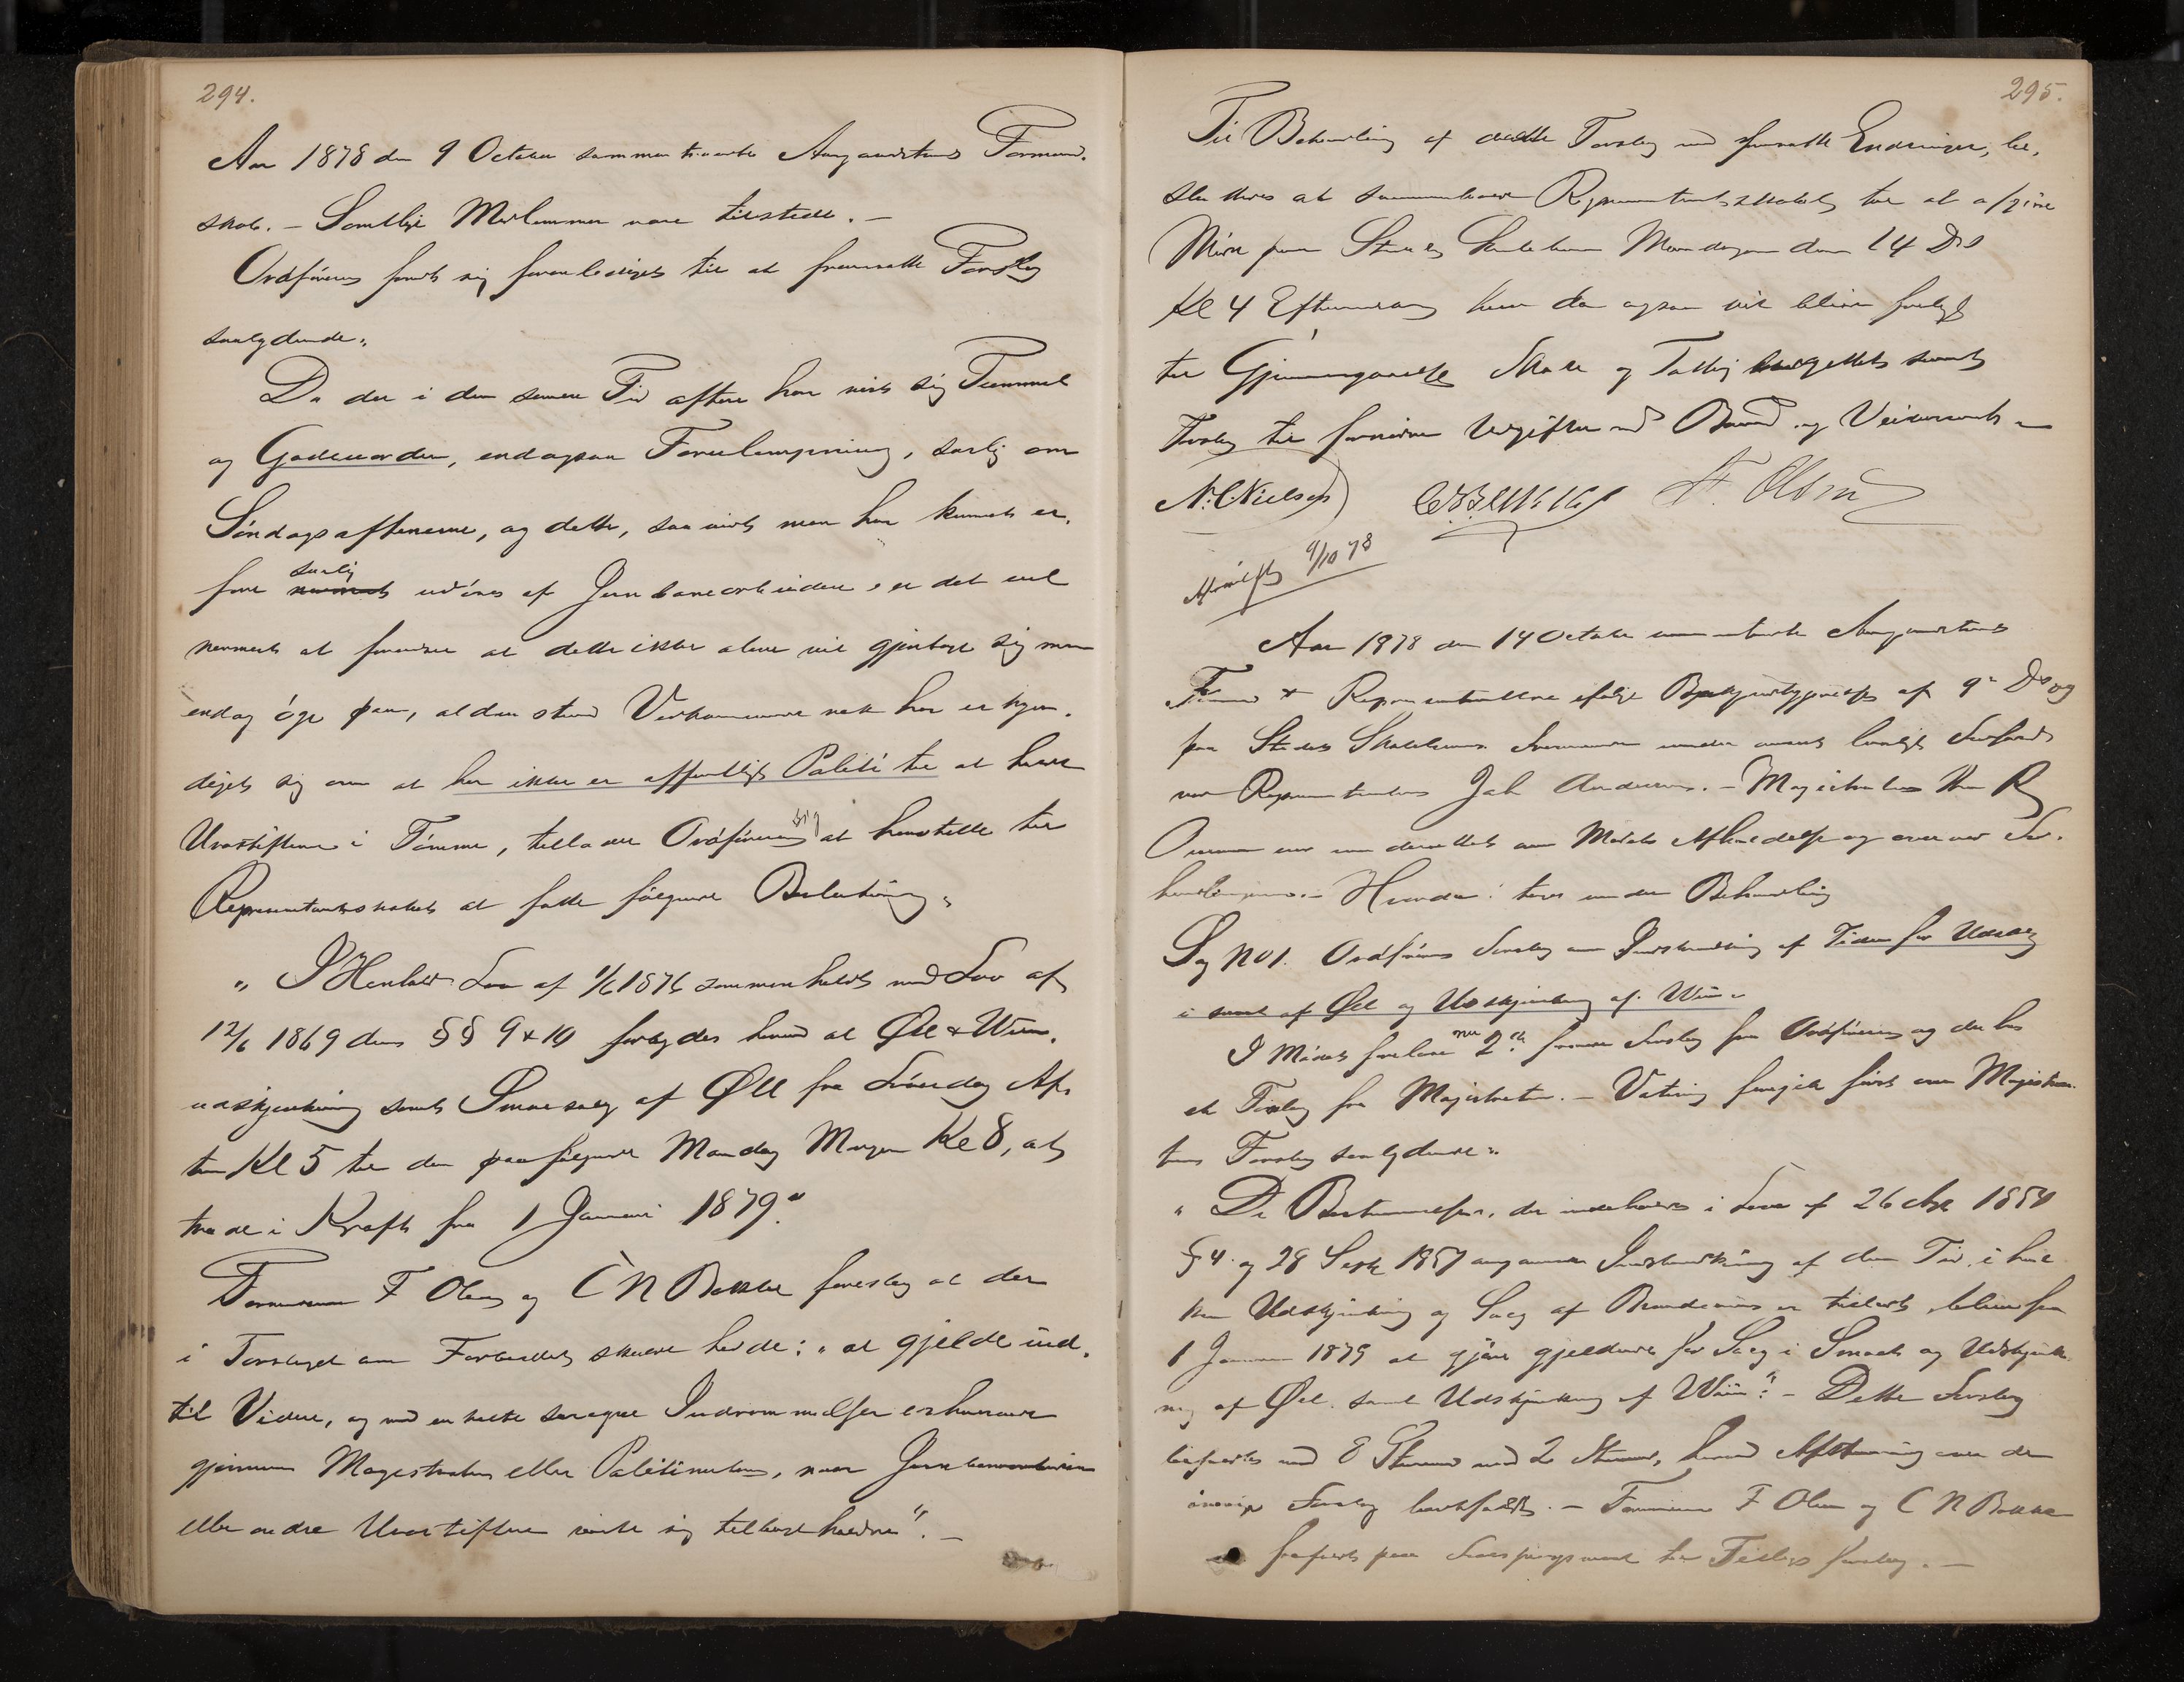 294.
Aar 1878 den 9 October sammentraadte Aasgaardstrands Formand-
skab. – Samtlige Medlemmer vare tilstede. –
Ordføreren fandt sig foranlediget til at fremsætte Forslag
saalydende:
Da der i den senere Tid oftere har vist sig Tummel
og Gadeuorden, endogsaa Forulempning, særlig om
Søndagsaftenerne, og dette, saavidt man har kunnet er-
fare særlig udøves af Jernbanearbeidere, er det vel
nærmest at formode at dette ikke alene vil gjentage sig men
endog øge paa, aldenstund Vedkommende nok har erkyn-
diget sig om at her ikke er offentligt Politi til at holde
Urostiftere i Tømme, tillader Ordføreren sig at henstille til
Repræsentantskabet at fatte følgende Beslutning:
„I Henhold Lov af 1/6 1876 sammenholdt med Lov af
12/6 1869 dens §§ 9 & 10 forbydes herved al Øl & Viin-
udskjænkning samt Smaasalg af Øll fra Søndag Af-
ten Kl 5 til den paafølgende Mandag Morgen Kl 8, at
træde i Kraft fra 1 Januari 1879."
Formændene F Olsen og C N Bakke foreslog at der
i Forslaget om Forbudet skulde hedde: „at gjelde ind-
til Videre, og med enkelte særegne Indrømmelser erhvervede
gjennem Magistraten eller Politimesteren, naar Jernbanearbeidere
eller andre Urostiftere viste sig tilbageholdne". –
295.
Til Behandling af dette Forslag med foreslaaede Endringer, be-
sluttedes at sammenkalde Repræsentantskabet til at afgive
Møde paa Stedets Skolehuus Mandagen den 14 Ds
Kl 4 Eftermiddag hvor da ogsaa vil blive forelagt
til Gjennemgaaelse Skole og Fattig budgettet samt
Forslag til fornødne Udgifter ved Brand og Veivæsenet –
N. C. Nielsen C N Bakke F. Olsen
9/10 78
Aar 1878 den 14 October sammentraadte Aasgaardstrands
Formænd & Repræsentanter ifølge Bekjendtgjørelse af 9de Ds og
paa Stedets Skolehuus. Fraværende uden anmeldt lovligt Forfald
var Repræsentanten Joh Andersen. – Magistraten Hr
var underrettet om Mødets Afholdelse og overvar For-
handlingerne. – Herunder toges under Behandling
Sag No 1. Ordførerens Forslag om Indskrænkning af Tiden for Udsalg
i smaat af Øl og Udskjænkning af Viin.
I Mødet forelaa nu 2de Forslag fra Ordføreren og des
et Forslag fra Magistraten. – Votering foregik først over Magistra-
tens Forslag saalydende:
„De Bestemmelser, der indeholdes i Lov af 26 Aug 1854
§ 4 og 28 Sept 1857 angaaende Indskrænkning af den Tid, i hvil-
ken Udskjænkning og Salg af Brændeviin er tilladt, blive fra
1 Januar 1879 at gjøre gjeldende for Salg i Smaat og Udskjænk-
ning af Øl samt Udskjænkning af Viin". – Dette Forslag
bifaldtes med 8 Stemmer mod 2 Stemmer, hvorved Afstemning over de
øvrige Forslag bortfaldt. – Formændene F Olsen og C N Bakke
frafaldt paa Forespørgsmaal sit Tillægsforslag. –